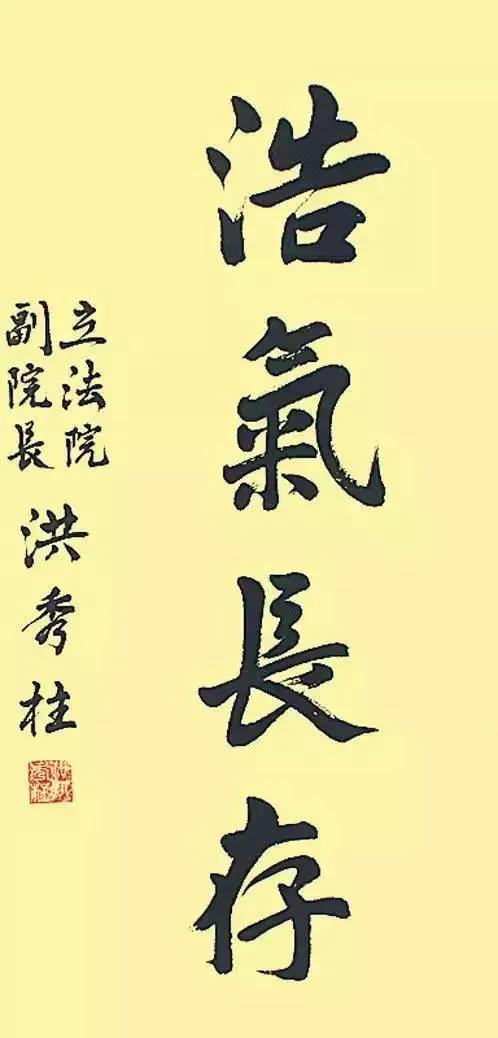 浩氣長存
立法院
副院長
洪秀柱